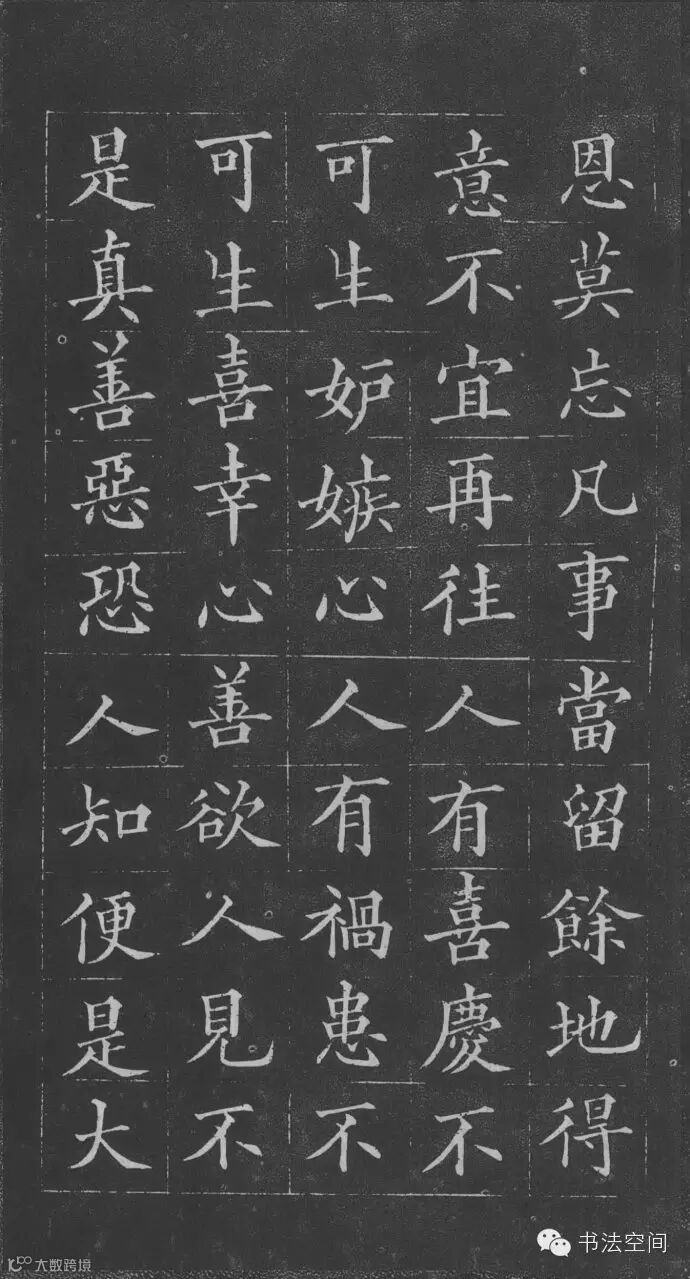 恩莫忘凡事當留餘地得
意不宜再往人有喜慶不
可生妒嫉心人有禍患不
可生喜幸心善欲人見不
是真善惡恐人知便是大
书法空间
大数跨境